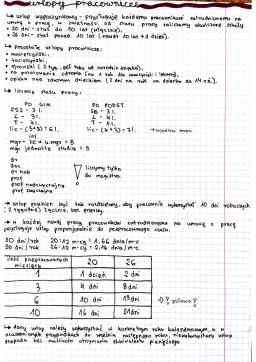 urlopy pracownicze
↳ urlop wypoczynkowy - przysługuje każdemu pracownikowi zatrudnionemu na
umowę o pracę w zależności od stażu pracy zaliczamy ukończone szkoły
• 20 dni - staż do 10 lat (włącznie).
• 26 dni - staż ponad 10 lat (nawet 10 lat + 1 dzień).
↳ Pozostałe urlopy pracownicze:
• macierzyński
• tacierzyński
• opieka nad zdrowym dzieckiem (2 dni na rok na dziecko do 14 r.ż.).
↳ liczenie stażu pracy:
PO GIM
PO PODST
ZSZ - 3 l.
SB - 3 l.
L - 3 l.
L - 4 l.
T - 4 l.
T - 5 l.
lic - (3+3) = 6 l.
lic - (4+3) = 7 l.
inż
mgr
dr
doc
dr hab
prof
prof nadzwyczajny
prof zwyczajny
liczymy tylko
do magistra
↳ urlop powinien być tak rozdzielony, aby pracownik wykorzystał 10 dni roboczych
(2 tygodnie) łącznie, bez przerwy.
pracy pracownikowi zatrudnionemu na umowę o pracę
przysługuje urlop proporcjonalnie do przepracowanego czasu.
20 dni/rok 20:12 m-cy = 1,66 dnia/m-c
ilość przepracowanych
miesięcy
20
26
1
1 dzień
2 dni
3
4 dni
8 dni
6
10 dni
13 dni
10
16 dni
21 dni
↳ dany urlop należy wykorzystać w konkretnym roku kalendarzowym, a w
uzasadnionych przypadkach do września następnego roku, niewykorzystany urlop
przepada bez możliwości otrzymania ekwiwalentu pieniężnego